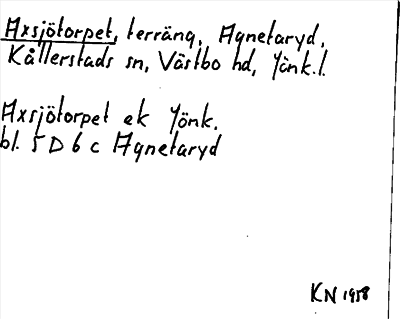 Axsjötorpet, terräng, Agnetaryd,
Kållerstads sn, Västbo hd, Jönk.l.
Axsjötorpet ek Jönk.
bl. 5 D 6 c Agnetaryd
KN 1958